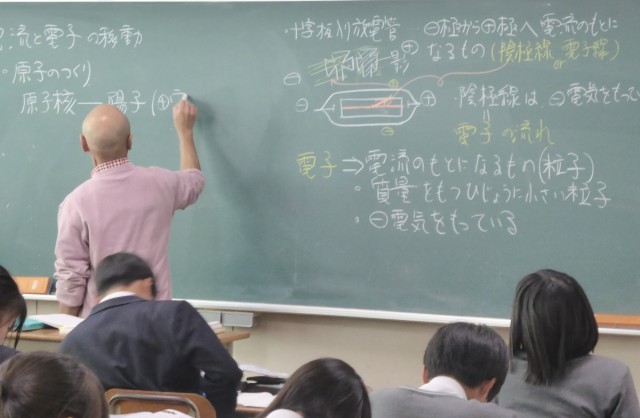 流と電子の移動
・原子のつくり
原子核 ― 陽子(⊕
十字板入り放電管
影
⊖極から⊕極へ電流のもとに
なるもの(陰極線 or 電子線)
⊖
⊕
⊖
⊕
⊕
⊖
・陰極線は⊖電気をもっ
||
電子の流れ
電子⇒電流のもとになるもの(粒子)
・質量をもつひじょうに小さい粒子
・⊖電気をもっている